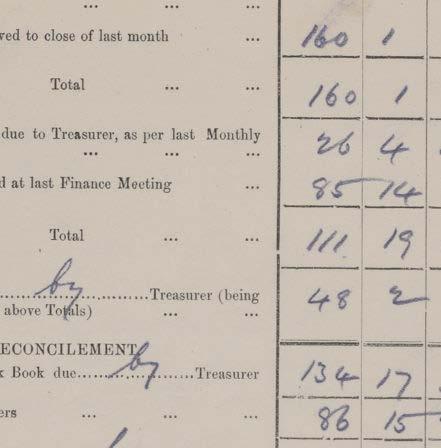 ... ... ...
ved to close of last month ... 160 1
Total ... ... 160 1
due to Treasurer, as per last Monthly
... ... ... 26 4
d at last Finance Meeting ... 85 14
Total ... ... 111 19
by Treasurer (being 48 2
above Totals) ... ...
ECONCILEMENT
k Book due by Treasurer 134 17
ers ... ... ... 86 15